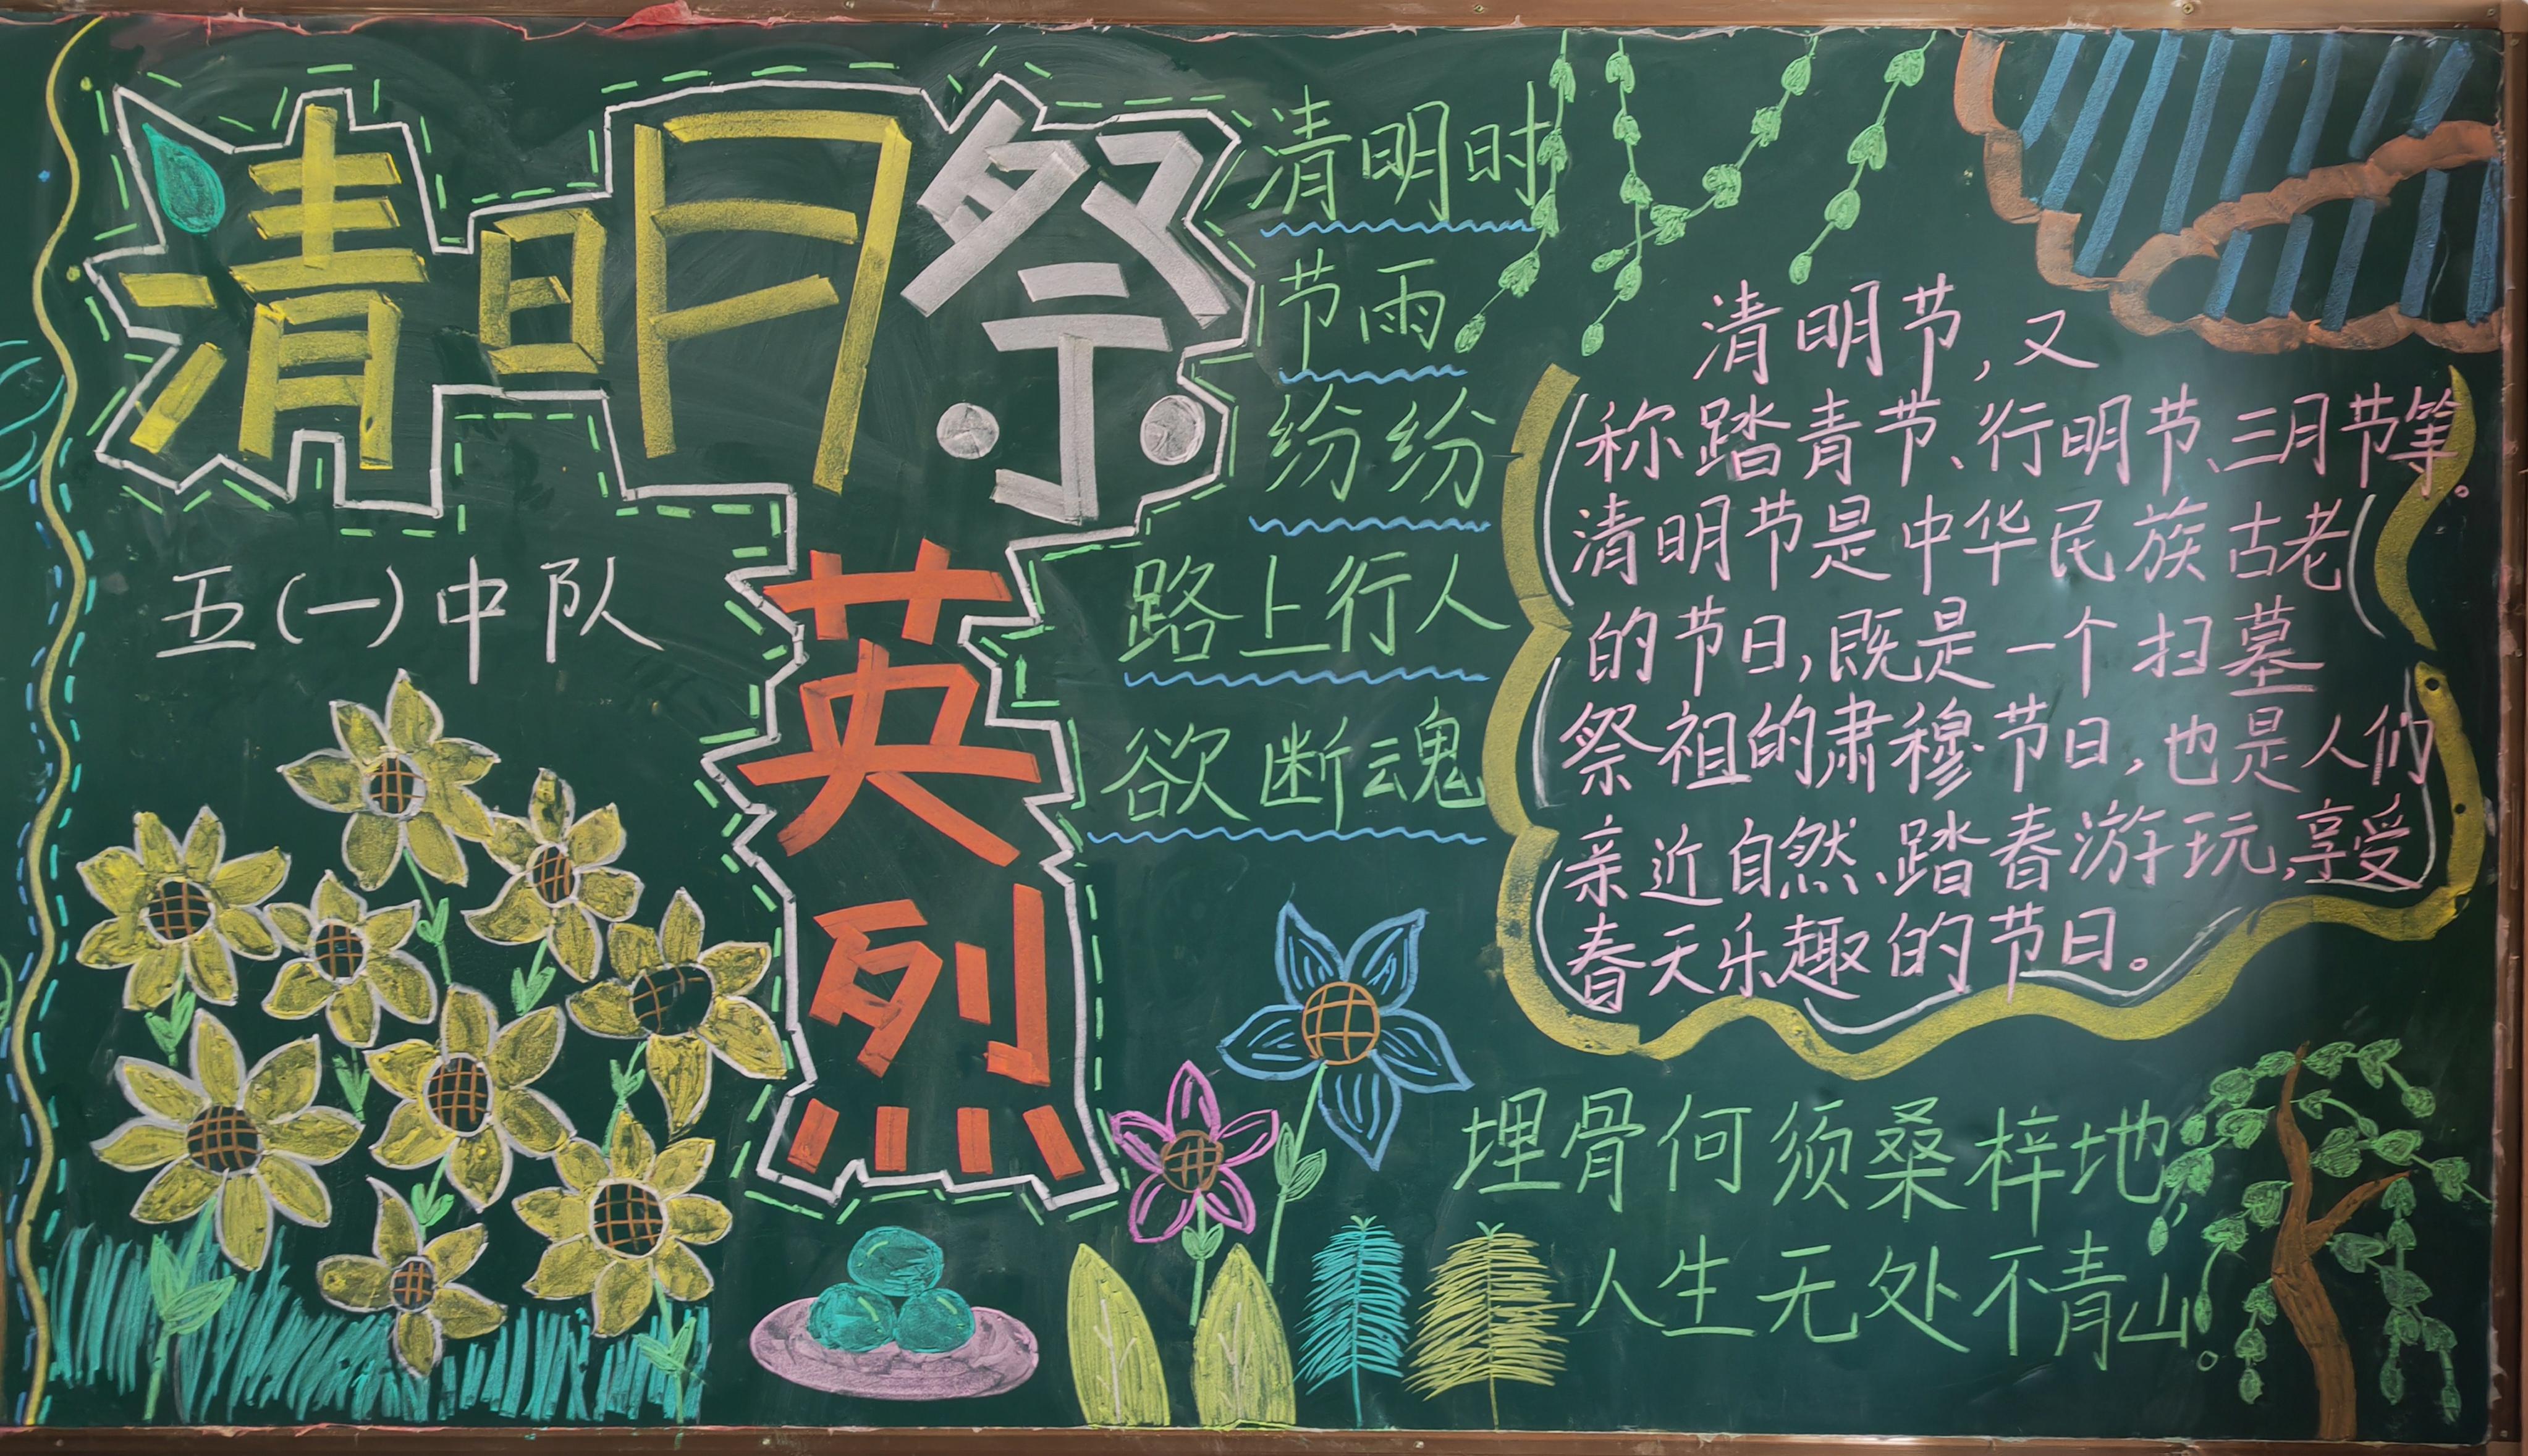 清明祭
英
烈
五(一)中队
清明时
节雨
纷纷
路上行人
欲断魂
清明节,又
称踏青节、行明节、三月节等。
清明节是中华民族古老
的节日,既是一个扫墓
祭祖的肃穆节日,也是人们
亲近自然、踏春游玩,享受
春天乐趣的节日。
埋骨何须桑梓地,
人生无处不青山。